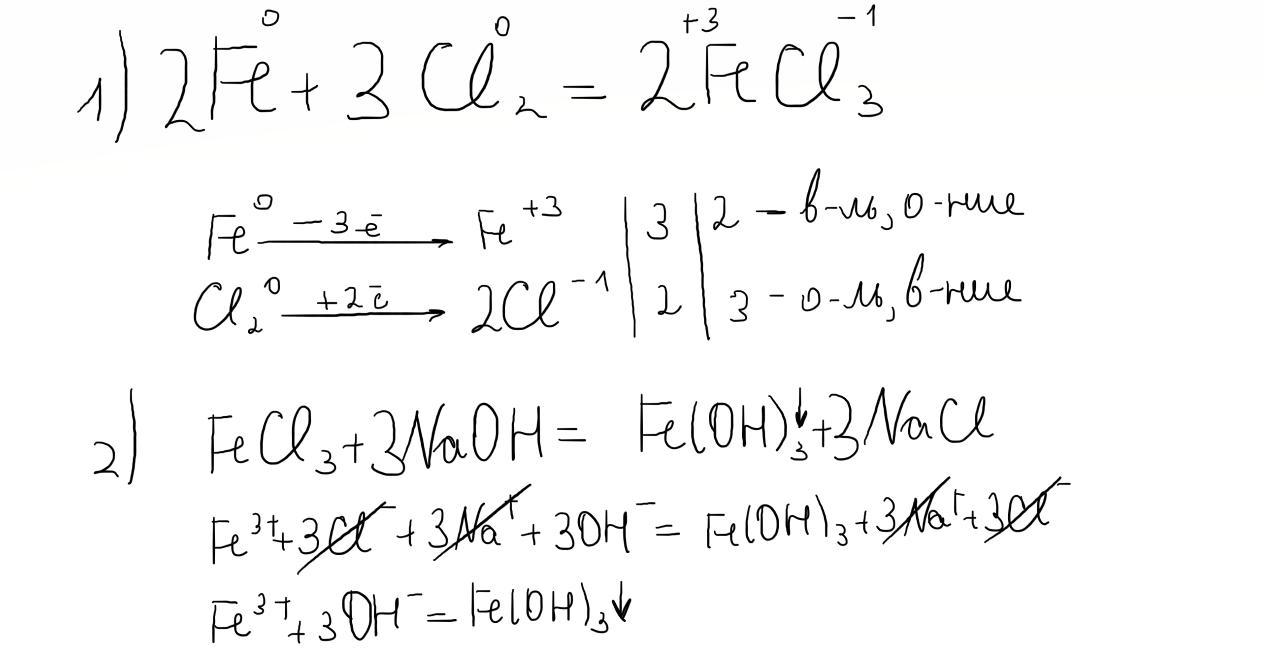 1) 2Fe⁰ + 3Cl₂⁰ = 2Fe⁺³Cl₃⁻¹
Fe⁰ —−3ē→ Fe⁺³ | 3 | 2 – в-ль, о-ние
Cl₂⁰ —+2ē→ 2Cl⁻¹ | 2 | 3 – о-ль, в-ние
2) FeCl₃ + 3NaOH = Fe(OH)₃↓ + 3NaCl
Fe³⁺ + 3Cl⁻ + 3Na⁺ + 3OH⁻ = Fe(OH)₃ + 3Na⁺ + 3Cl⁻
Fe³⁺ + 3OH⁻ = Fe(OH)₃↓